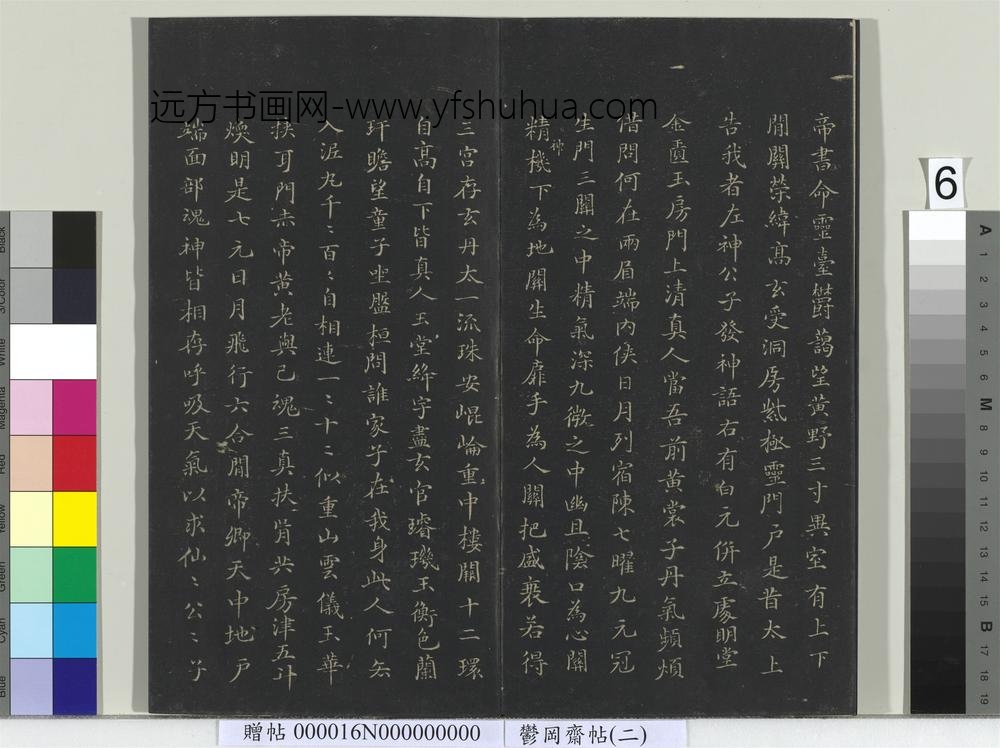 远方书画网-www.yfshuhua.com
帝書命靈臺鬱藹望黃野三寸異室有上下
間關榮緯高玄受洞房紫極靈門戶是昔太上
告我者左神公子發神語右有白元併立處明堂
金匱玉房門上清真人當吾前黃裳子丹氣頻煩
借問何在兩眉端內俠日月列宿陳七曜九元冠
生門三關之中精氣深九微之中幽且陰口為心關
精神機下為地關生命扉手為人關把盛衰若得
三宮存玄丹太一流珠安崐崘重中樓閣十二環
自高自下皆真人玉堂絳宇盡玄宮璿璣玉衡色蘭
玕瞻望童子坐盤桓問誰家子在我身此人何去
入泥丸千〻百〻自相連一〻十〻似重山雲儀玉華
俠耳門赤帝黃老與己魂三真扶胥共房津五斗
煥明是七元日月飛行六合間帝鄉天中地戶
端面部魂神皆相存呼吸天氣以求仙〻公〻子
6
Black
3/Color
White
Magenta
Red
Yellow
Green
Cyan
Blue
A
1
2
3
4
5
6
M
8
9
10
11
12
13
14
15
B
17
18
19
贈帖 000016N000000000
鬱岡齋帖(二)